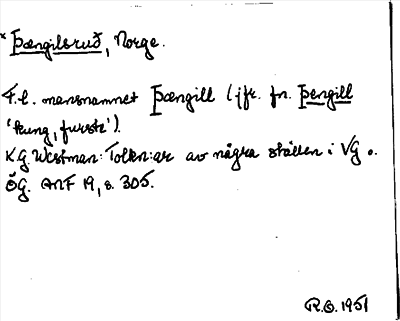 * Þængilsruð, Norge.
F.l. mansnamnet Þængill (jfr. fn. þengill
'kung, furste').
K.G. Westman: Tolkn:ar av några ställen i VG o.
ÖG. ANF 19, s. 305.
R.O. 1951